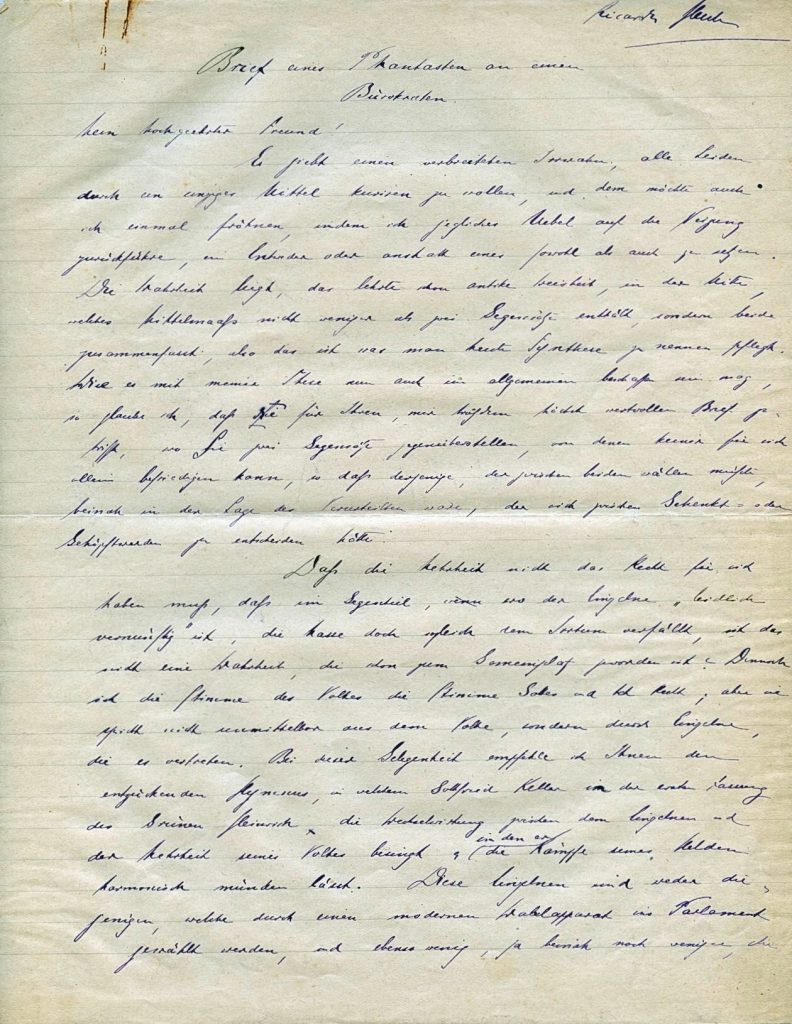 Ricarda Huch
Brief eines Phantasten an einen
Bürokraten.
Mein hochgeehrter Freund!
Es giebt einen verbreiteten Irrwahn, alle Leiden
durch ein einziges Mittel kuriren zu wollen, und dem möchte auch
ich einmal fröhnen, indem ich jegliches Uebel auf die Neigung
zurückführe, ein Entweder oder anstatt eines sowohl als auch zu setzen.
Die Wahrheit liegt, das lehrte schon antike Weisheit, in der Mitte,
welches Mittelmaass nicht weniger als zwei Gegensätze enthält, sondern beide
zusammenfasst, also das ist was man heute Synthese zu nennen pflegt.
Wie es mit meiner These nun auch im allgemeinen beschaffen sein mag,
so glaube ich, daß sie für Ihren, mir trotzdem höchst wertvollen Brief zu-
trifft, wo Sie zwei Gegensätze gegenüberstellen, von denen keiner für sich
allein befriedigen kann, so daß derjenige, der zwischen beiden wählen müßte,
beinah in der Lage des Verurteilten wäre, der sich zwischen Gehenkt= oder
Geköpftwerden zu entscheiden hätte.
Daß die Mehrheit nicht das Recht für sich
haben muß, daß im Gegenteil, wenn der Einzelne „leidlich
vernünftig" ist, die Masse doch sogleich dem Irrtum verfällt, ist das
nicht eine Wahrheit, die schon zum Gemeinplatz geworden ist? Dennoch
ist die Stimme des Volkes die Stimme Gottes und hat Recht; aber sie
spricht nicht unmittelbar aus dem Volke, sondern durch Einzelne,
die es vertreten. Bei dieser Gelegenheit empfehle ich Ihnen den
entzückenden Hymnus, in welchem Gottfried Keller in der ersten Fassung
des Grünen Heinrich, die Wechselwirkung zwischen dem Einzelnen und
der Mehrheit seines Volkes besingt & in den er
die Kämpfe seines Helden
harmonisch münden lässt. Diese Einzelnen sind weder die-
jenigen, welche durch einen modernen Wahlapparat ins Parlament
gewählt werden, und ebenso wenig, ja beinah noch weniger, die